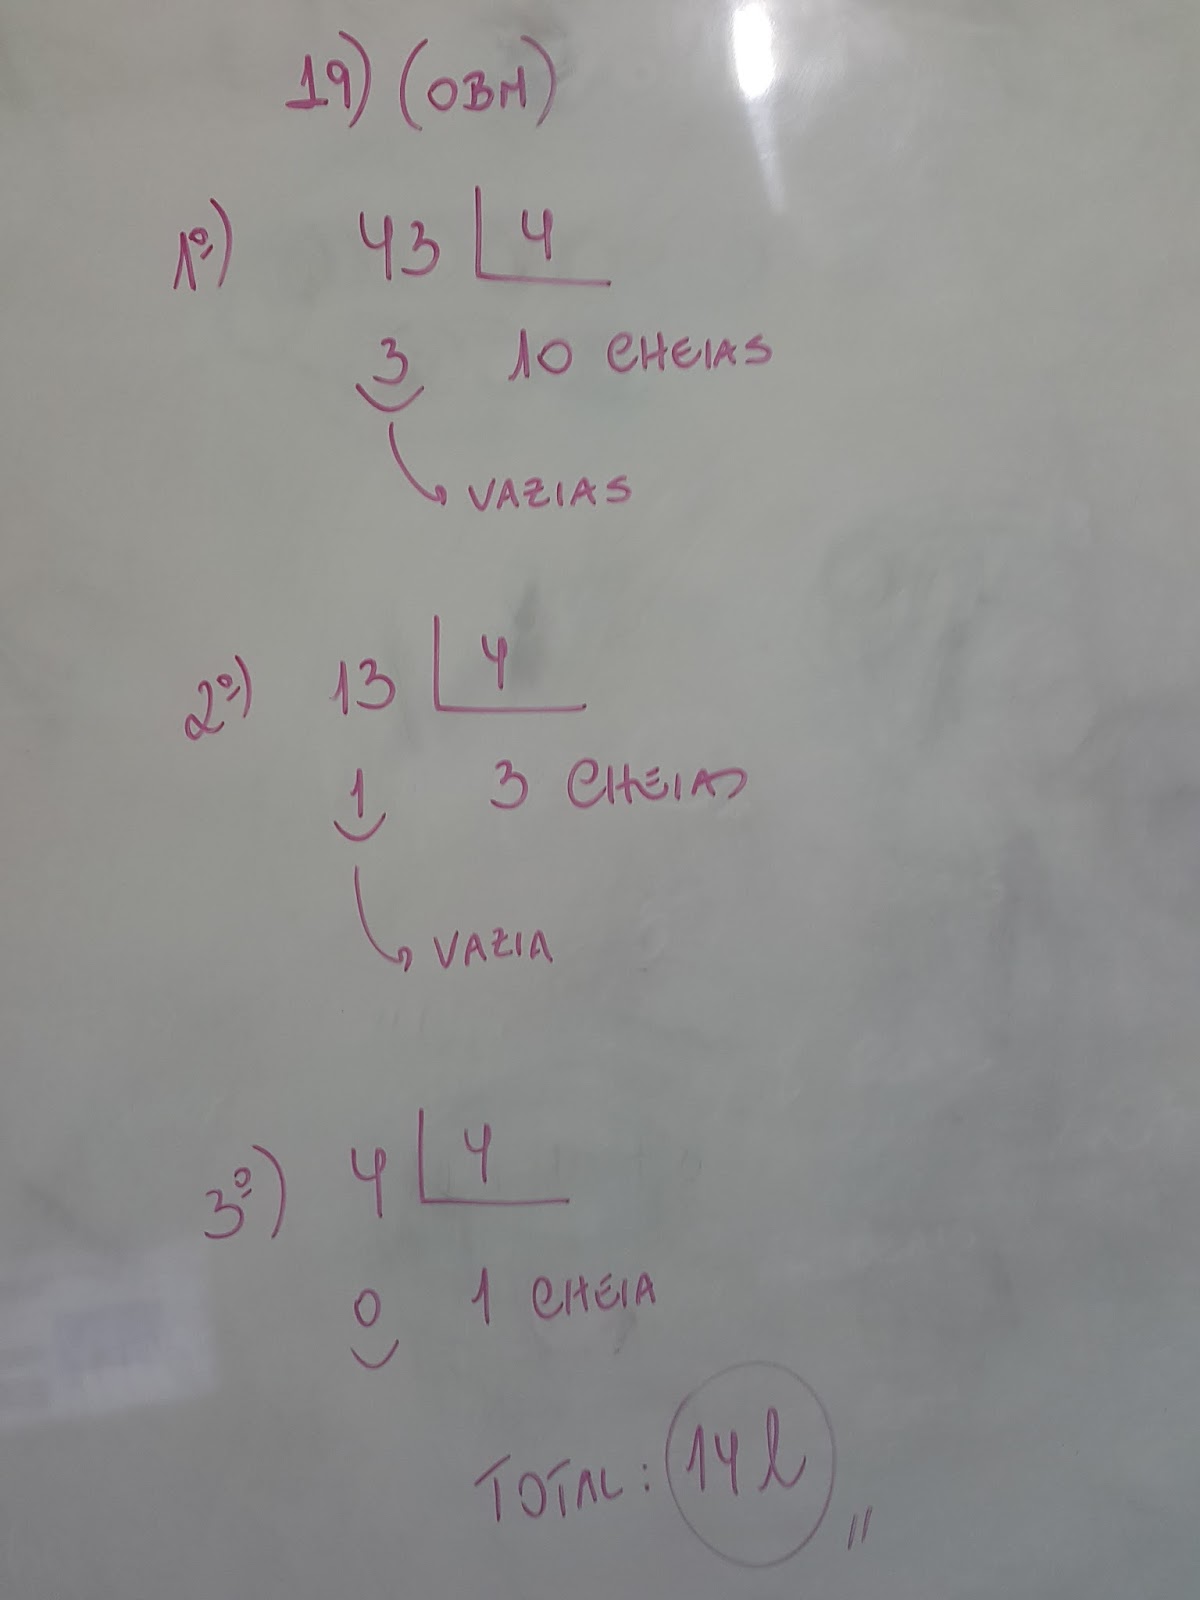 19) (OBM)
1º) 43 4
3 10 CHEIAS
VAZIAS
2º) 13 4
1 3 CHEIAS
VAZIA
3º) 4 4
0 1 CHEIA
TOTAL: 14 l